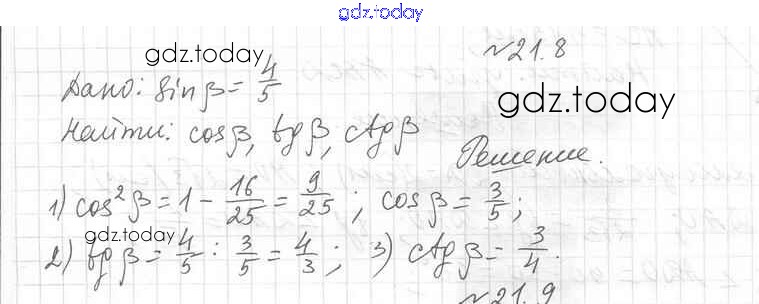 gdz.today
gdz.today
№21.8
Дано: sin β = 4/5
gdz.today
Найти: cos β, tg β, ctg β
Решение.
1) cos² β = 1 − 16/25 = 9/25 ; cos β = 3/5 ;
gdz.today
2) tg β = 4/5 : 3/5 = 4/3 ; 3) ctg β = 3/4 .
№21.9